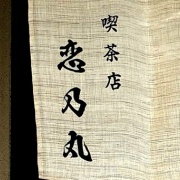 喫茶店
恋乃丸